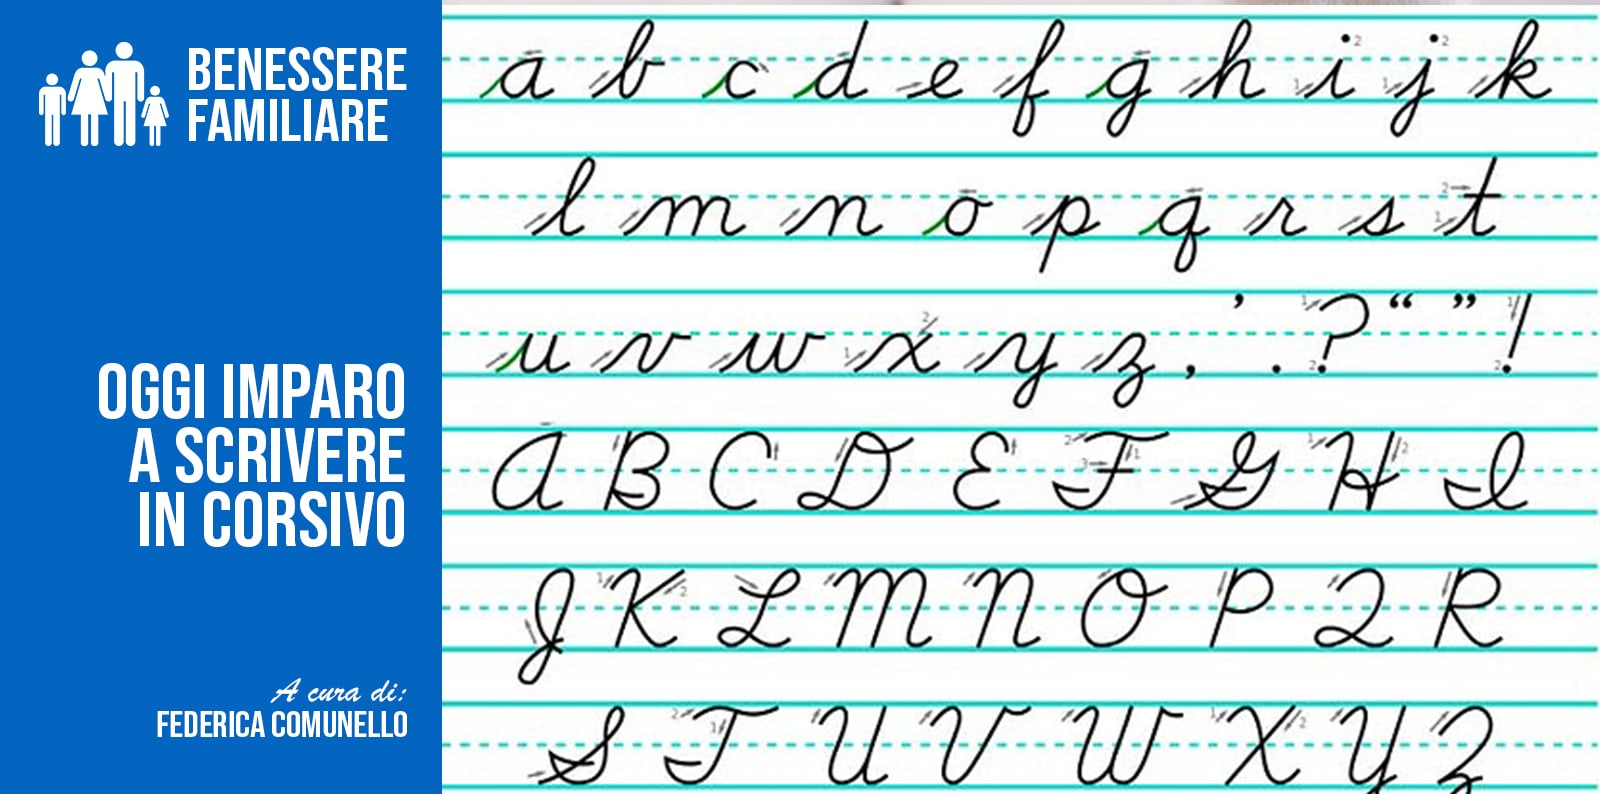 BENESSERE
FAMILIARE
OGGI IMPARO
A SCRIVERE
IN CORSIVO
A cura di:
FEDERICA COMUNELLO
a b c d e f g h i j k
l m n o p q r s t
u v w x y z , ’ . ? “ ” !
A B C D E F G H I
J K L M N O P Q R
S T U V W X Y Z